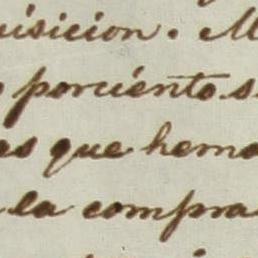 uisicion. M
porciento s
as que hemo
la compra